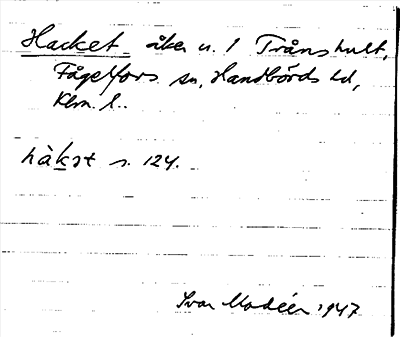 Hacket åker u. 1 Trånshult,
Fågelfors sn, Handbörds hd,
Klm. l.
hàkət s. 124.
Ivar Modéer 1947